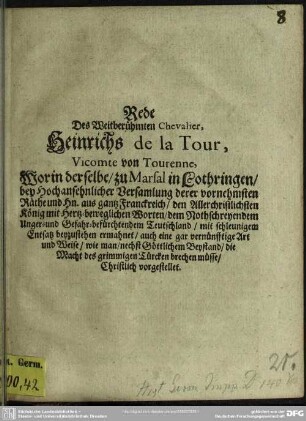 8
Rede
Des Weitberühmten Chevalier,
Heinrichs de la Tour,
Vicomte von Tourenne,
Worin derselbe/ zu Marsal in Lothringen/
bey Hochansehnlicher Versamlung derer vornehmsten
Räthe und Hn. aus gantz Franckreich/ den Allerchristlichsten
König mit Hertz-beweglichen Worten/ dem Nothschreyendem
Unger-und Gefahr-befürchtendem Teutschland/ mit schleunigem
Entsatz beyzustehen ermahnet/ auch eine gar vernünfftige Art
und Weise/ wie man/ nechst Göttlichem Beystand/ die
Macht des grimmigen Türcken brechen müsse/
Christlich vorgestellet.
Germ.
00,42
Hist.